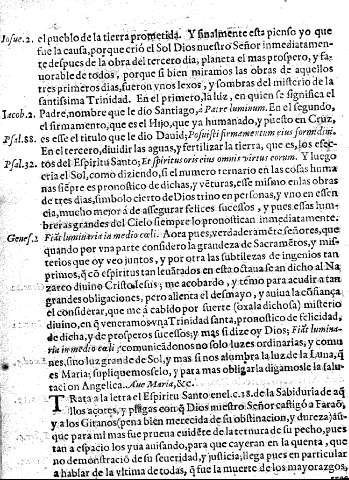 Iosue.2. el pueblo de la tierra prometida. Y finalmente esta pienso yo que
fue la causa, porque crió el Sol Dios nuestro Señor inmediatamen-
te despues de la obra del tercero dia, planeta el mas prospero, y fa-
uorable de todos, porque si bien miramos las obras de aquellos
tres primeros dias, fueron vnos lexos, y sombras del misterio de la
santissima Trinidad. En el primero, la luz, en quien se significa el
Iacob.2. Padre, nombre que le dio Santiago, à Patre luminum. En el segundo,
el firmamento, que es el Hijo, que ya humanado, y puesto en Cruz,
Psal.88. es esse el titulo que le dio Dauid; Posuisti firmamentum eius formidinẽ.
En el tercero, diuidir las aguas, y fertilizar la tierra, que es, los efec-
Psal.32. tos del Espiritu Santo; Et spiritus oris eius omnis virtus eorum. Y luego
cria el Sol, como diziendo, si el numero ternario en las cosas huma
nas siẽpre es pronostico de dichas, y vẽturas, esse mismo en las obras
de tres dias, simbolo cierto de Dios trino en personas, y vno en essen
cia, mucho mejor à de assegurar felices sucessos, y pues essas lum-
breras grandes del Cielo siempre lo pronostican inmediatamente:
Genes.1 Fiãt luminaria in medio cœli. Aora pues, verdaderamẽte señores, que
quando por vna parte considero la grandeza de Sacramẽtos, y mis-
terios que oy veo juntos, y por otra las subtilezas de ingenios tan
primos, q̃ cõ espiritus tan leuãtados en esta octaua se an dicho al Na
zareo diuino Cristo Iesus; me acobardo, y temo para acudir a tan
grandes obligaciones, pero alienta el desmayo, y auiua la cõfiança,
el considerar, que me à cabido por suerte (oxala dichosa) misterio
diuino, en q̃ veneramos vna Trinidad santa, pronostico de felicidad,
de dicha, y de prosperos sucessos; y mas si dize oy Dios; Fiãt lumina-
ria in medio cœli; comunicãdonos no solo luzes ordinarias, y comu-
nes, sino luz grande de Sol, y mas si nos alumbra la luz de la Luna, q̃
es Maria; supliquemosselo, y para mas obligarla digamosle la salu-
tacion Angelica. Aue Maria, &c.
TRata a la letra el Espiritu Santo en el c.18. de la Sabiduria de aq̃
llos açotes, y plagas con q̃ Dios nuestro Señor castigó a Faraõ,
y a los Gitanos (pena bien merecida de su obstinacion, y dureza) aũ-
que para mi mas fue prueua euidẽte de la ternura de su pecho, pues
tan a espacio los yua auisando, para que cayeran en la quenta, que
no demostració de su seueridad, y justicia; llega pues en particular
a hablar de la vltima de todas, q̃ fue la muerte de los mayorazgos,